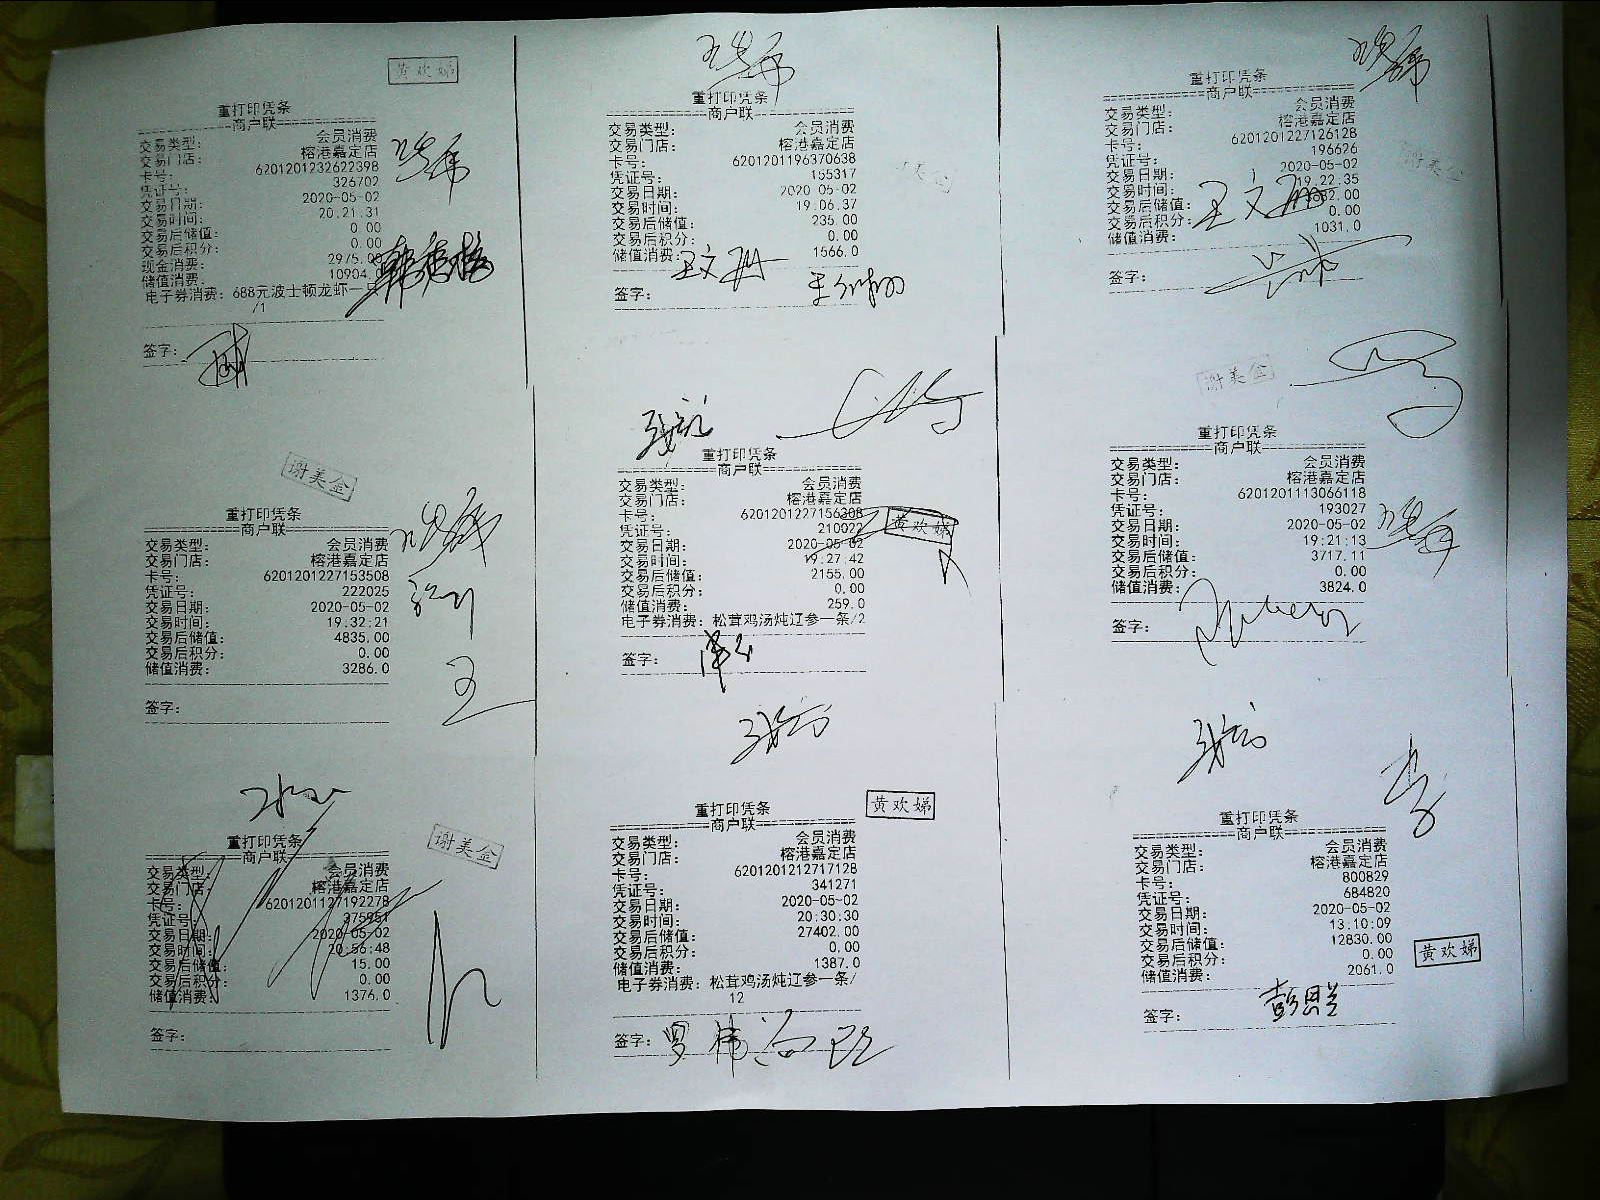 黄欢娣
重打印凭条
商户联
交易类型： 会员消费
交易门店： 榕港嘉定店
卡号： 6201201232622398
凭证号： 326702
交易日期： 2020-05-02
交易时间： 20.21.31
交易后储值： 0.00
交易后积分： 0.00
现金消费： 2975.00
储值消费： 10904.0
电子券消费：688元波士顿龙虾一只
/1
签字：
重打印凭条
商户联
交易类型： 会员消费
交易门店： 榕港嘉定店
卡号： 6201201196370638
凭证号： 155317
交易日期： 2020-05-02
交易时间： 19.06.37
交易后储值： 235.00
交易后积分： 0.00
储值消费： 1566.0
王文珊
签字：
重打印凭条
商户联
交易类型： 会员消费
交易门店： 榕港嘉定店
卡号： 6201201227126128
凭证号： 196626
交易日期： 2020-05-02
交易时间： 19.22.35
交易后储值：
交易后积分： 0.00
储值消费： 1031.0
王文珊
谢美金
签字：
谢美金
重打印凭条
商户联
交易类型： 会员消费
交易门店： 榕港嘉定店
卡号： 6201201227153508
凭证号： 222025
交易日期： 2020-05-02
交易时间： 19.32.21
交易后储值： 4835.00
交易后积分： 0.00
储值消费： 3286.0
王
签字：
重打印凭条
商户联
交易类型： 会员消费
交易门店： 榕港嘉定店
卡号： 6201201227156308
凭证号： 210022
黄欢娣
交易日期： 2020-05-02
交易时间： 19:27:42
交易后储值： 2155.00
交易后积分： 0.00
储值消费： 259.0
电子券消费：松茸鸡汤炖辽参一条/2
签字：
谢美金
重打印凭条
商户联
交易类型： 会员消费
交易门店： 榕港嘉定店
卡号： 6201201113066118
凭证号： 193027
交易日期： 2020-05-02
交易时间： 19:21:13
交易后储值： 3717.11
交易后积分： 0.00
储值消费： 3824.0
签字：
重打印凭条
商户联
谢美金
交易类型： 会员消费
交易门店： 榕港嘉定店
卡号： 6201201127192278
凭证号： 375951
交易日期： 2020-05-02
交易时间： 20:56:48
交易后储值： 15.00
交易后积分： 0.00
储值消费： 1376.0
签字：
黄欢娣
重打印凭条
商户联
交易类型： 会员消费
交易门店： 榕港嘉定店
卡号： 6201201212717128
凭证号： 341271
交易日期： 2020-05-02
交易时间： 20:30:30
交易后储值： 27402.00
交易后积分： 0.00
储值消费： 1387.0
电子券消费：松茸鸡汤炖辽参一条/
12
签字：
重打印凭条
商户联
交易类型： 会员消费
交易门店： 榕港嘉定店
卡号： 800829
凭证号： 684820
交易日期： 2020-05-02
交易时间： 13:10:09
交易后储值： 12830.00
交易后积分： 0.00
黄欢娣
储值消费： 2061.0
签字：